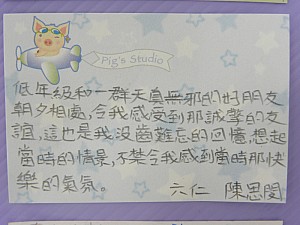 Pig's Studio
低年級和一群天真無邪的好朋友
朝夕相處,令我感受到那誠摯的友
誼,這也是我沒齒難忘的回憶,想起
當時的情景,不禁令我感到當時那快
樂的氣氛。 六仁 陳思閔